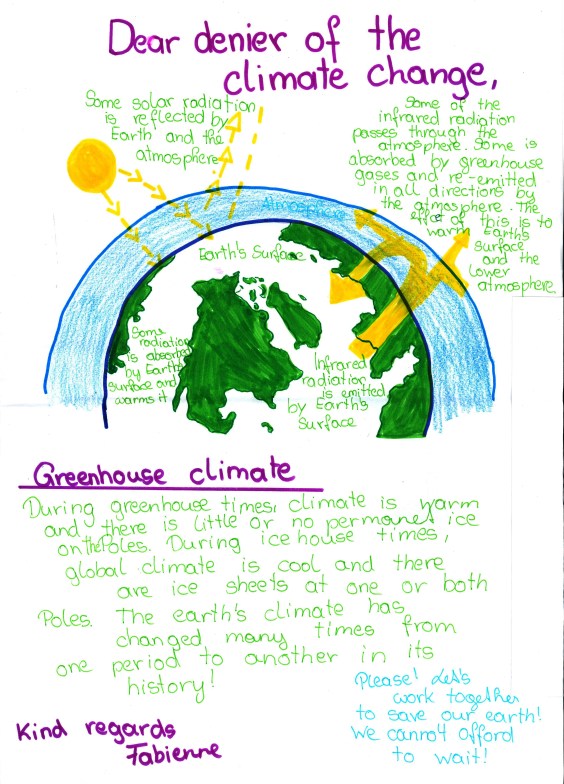 Dear denier of the
climate change,
Some solar radiation
is reflected by
Earth and the
atmosphere
Some of the
infrared radiation
passes through the
atmosphere. Some is
absorbed by greenhouse
gases and re-emitted
in all directions by
the atmosphere. The
effect of this is to
warm Earth's
surface
and the
lower
atmosphere.
Atmosphere
Earth's Surface
Some
radiation
is absorbed
by Earth's
surface and
warms it
Infrared
radiation
is emitted
by Earth's
Surface
Greenhouse climate
During greenhouse times, climate is warm
and there is little or no permanet ice
on the Poles. During ice house times,
global climate is cool and there
are ice sheets at one or both
Poles. The earth's climate has
changed many times from
one period to another in its
history!
Please! Let's
work together
to save our earth!
We cannot afford
to wait!
Kind regards
Fabienne